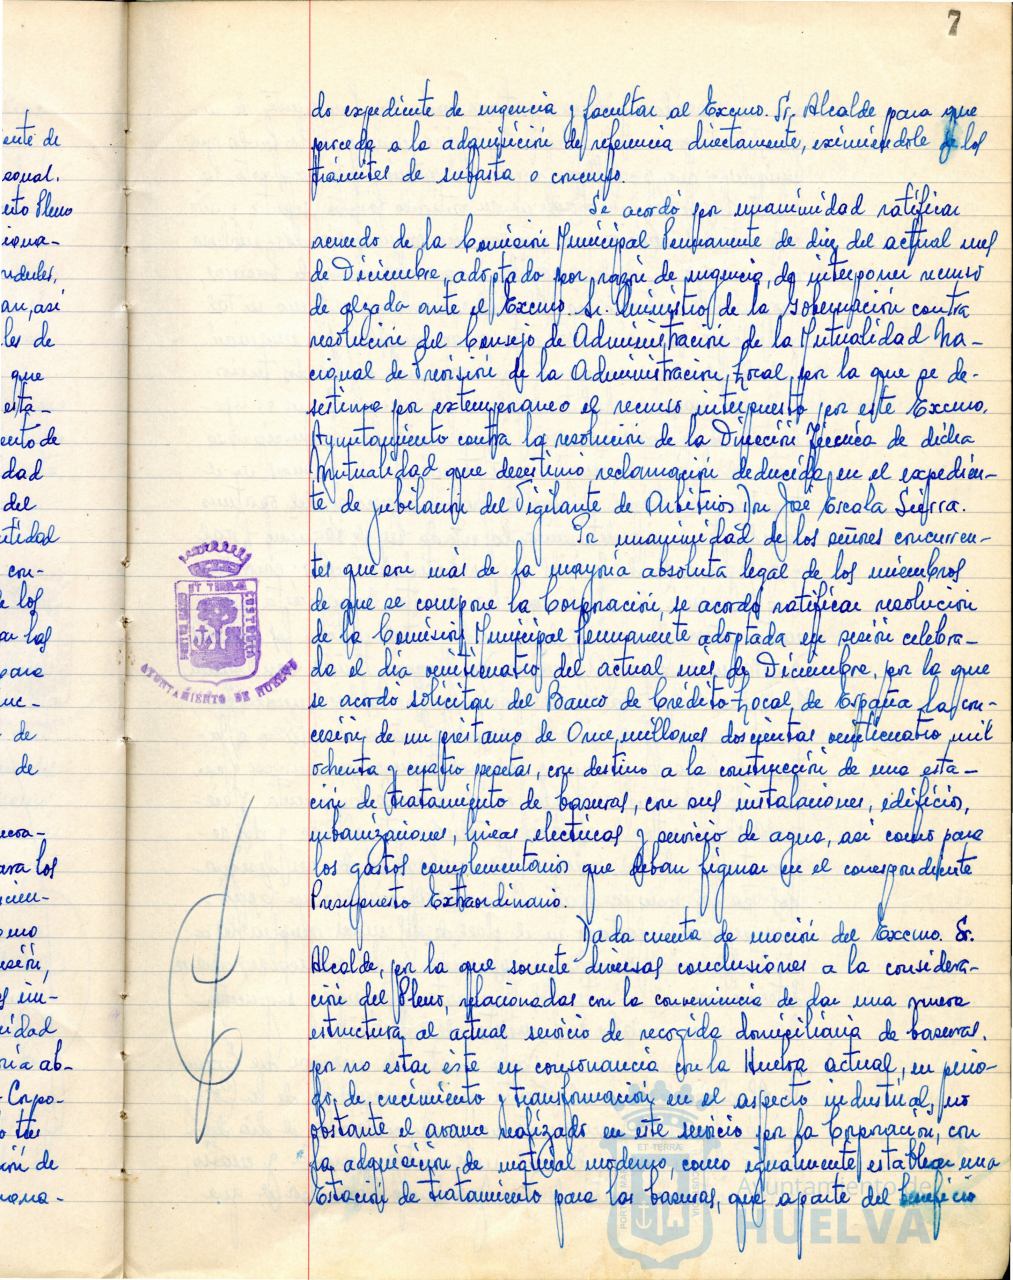 7
do expediente de urgencia y facultar al Excmo. Sr. Alcalde para que
proceda a la adquisición de referencia directamente, eximiéndole de los
trámites de subasta o concurso.
Se acordó por unanimidad ratificar
acuerdo de la Comisión Municipal Permanente de diez del actual mes
de Diciembre, adoptado por razón de urgencia, de interponer recurso
de alzada ante el Excmo. Sr. Ministro de la Gobernación contra
resolución del Consejo de Administración de la Mutualidad Na-
cional de Previsión de la Administración Local, por la que se de-
sestima por extemporaneo el recurso interpuesto por este Excmo.
Ayuntamiento contra la resolución de la Dirección Técnica de dicha
Mutualidad que desestimó reclamación deducida en el expedien-
te de jubilación del Vigilante de Arbitrios Don José Escala Sierra.
Por unanimidad de los señores concurren-
tes que son más de la mayoría absoluta legal de los miembros
de que se compone la Corporación, se acordó ratificar resolución
de la Comisión Municipal Permanente adoptada en sesión celebra-
da el día veinticuatro del actual mes de Diciembre, por la que
se acordó solicitar del Banco de Crédito Local de España la con-
cesión de un préstamo de Once millones doscientas veinticuatro mil
ochenta y cuatro pesetas, con destino a la construcción de una esta-
ción de tratamiento de basuras, con sus instalaciones, edificios,
urbanizaciones, lineas electricas y servicio de agua, así como para
los gastos complementarios que deban figurar en el correspondiente
Presupuesto Extraordinario.
Dada cuenta de moción del Excmo. Sr.
Alcalde, por la que somete diversas conclusiones a la considera-
ción del Pleno, relacionadas con la conveniencia de dar una nueva
estructura al actual servicio de recogida domiciliaria de basuras,
por no estar éste en consonancia con la Huelva actual, en perio-
do de crecimiento y transformación en el aspecto industrial, no
obstante el avance realizado en este servicio por la Corporación, con
la adquisición de material moderno, como igualmente establecer una
Estación de tratamiento para las basuras, que aparte del beneficio
ente de
sonal.
ento Pleno
ndeles,
an, así
les de
que
esta-
ento de
dad
del
con-
los
para
de
de
ara los
como
vidad
ría ab-
Corpo-
ión de
ET TERRAE
CUSTODIA
AYUNTAMIENTO DE HUELVA
ET TERRA
Ayuntamiento de
HUELVA